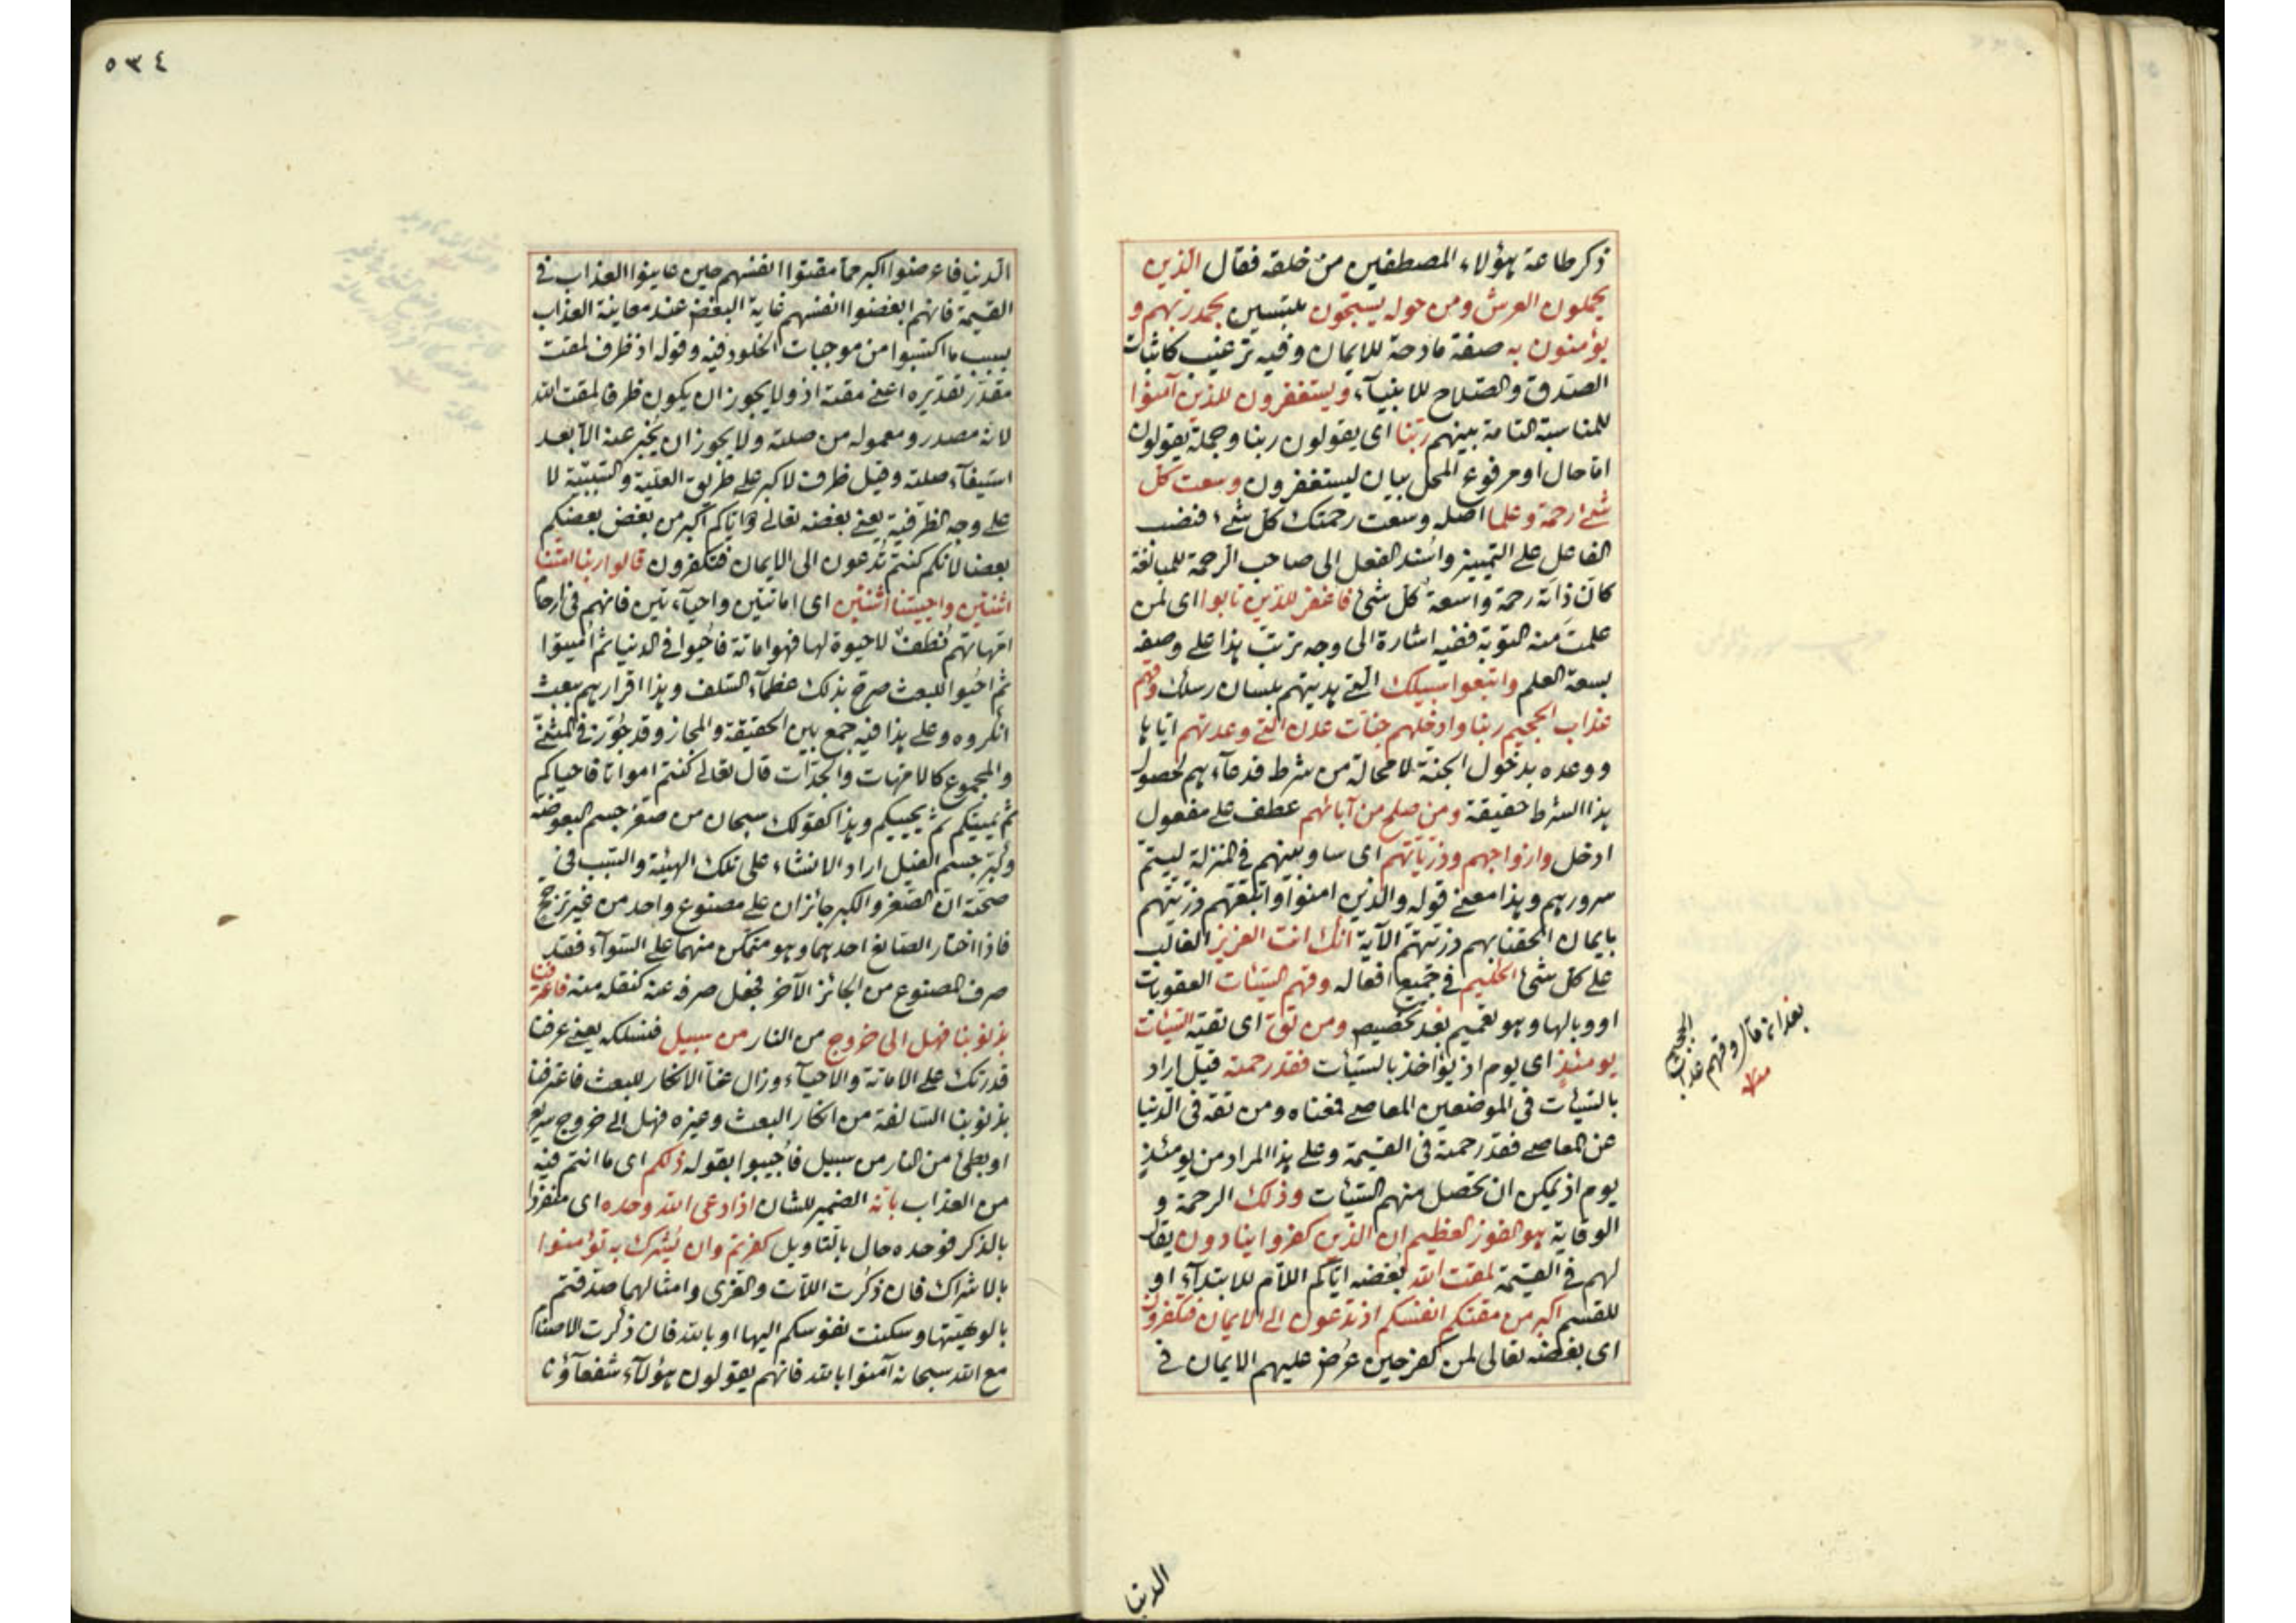 ذكر طاعة هؤلاء المصطفين من خلقه فقال الذين
يحملون العرش ومن حوله يسبحون ملتبسين بحمد ربهم و
يؤمنون به صفة مادحة للايمان وفيه ترغيب كاثبات
الصدق والصلاح للانبيآء ويستغفرون للذين آمنوا
للمناسبة التامة بينهم ربنا اى يقولون ربنا وجملة يقولون
اما حال او مرفوع المحل بيان ليستغفرون وسعت كل
شئ رحمة وعلما اصله وسعت رحمتك كل شئ فنصب
الفاعل على التمييز واسند الفعل الى صاحب الرحمة للمبالغة
كانّ ذاته رحمة واسعة كل شئ فاغفر للذين تابوا اى لمن
علمت منه التوبة ففيه اشارة الى وجه ترتب هذا على وصفه
بسعة العلم واتبعوا سبيلك التى هديتهم بلسان رسلك وقهم
عذاب الجحيم ربنا وادخلهم جنات عدن التى وعدتهم اياها
ووعده بدخول الجنة لا محالة من شرط فدعآءهم لحصول
هذا الشرط حقيقة ومن صلح من آبائهم عطف على مفعول
ادخل وازواجهم وذرياتهم اى ساو بينهم فى المنزلة ليتم
سرورهم وهذا معنى قوله والذين امنوا واتبعتهم ذريتهم
بايمان الحقنا بهم ذريتهم الآية انك انت العزيز الغالب
على كل شئ الحكيم فى جميع افعاله وقهم السيئات العقوبات
او وبالها وهو تعميم بعد تخصيص ومن تق اى تقيه السيئات
يومئذ اى يوم اذ يؤاخذ بالسيئات فقد رحمته قيل اراد
بالسيئات فى الموضعين المعاصى فمعناه ومن تقه فى الدنيا
عن المعاصى فقد رحمته فى القيمة وعلى هذا المراد من يومئذ
يوم اذ يمكن ان تحصل منهم السيئات وذلك الرحمة و
الوقاية هو الفوز العظيم ان الذين كفروا ينادون يقال
لهم فى القيمة لمقت الله بغضه اياكم اللام للابتدآء او
للقسم اكبر من مقتكم انفسكم اذ تدعون الى الايمان فتكفرون
اى بغضه تعالى لمن كفر حين عرض عليهم الايمان فى
بعد ان قال وقهم عذاب
الجحيم
منه
الدنيا
٥٣٤
الدنيا فاعرضوا اكبر مما مقتوا انفسهم حين عاينوا العذاب فى
القيمة فانهم ابغضوا انفسهم غاية البغض عند معاينة العذاب
بسبب ما اكتسبوا من موجبات الخلود فيه وقوله اذ ظرف لمقت
مقدر تقديره اعنى مقته اذ ولا يجوز ان يكون ظرفا لمقت الله
لانه مصدر ومعموله من صلته ولا يجوز ان يخبر عنه الا بعد
استيفآء صلته وقيل ظرف لاكبر على طريق العلية والسببية لا
على وجه الظرفية يعنى بغضه تعالى اياكم اكبر من بغض بعضكم
بعضا لانكم كنتم تدعون الى الايمان فتكفرون قالوا ربنا امتنا
اثنتين واحييتنا اثنتين اى اماتتين واحيآءتين فانهم فى ارحام
امهاتهم نطف لا حيوة لها فهو اماتة فاحيوا فى الدنيا ثم اميتوا
ثم احيوا للبعث صرح بذلك عظمآء السلف وهذا اقرارهم ببعث
انكروه وعلى هذا فيه جمع بين الحقيقة والمجاز وقد جوّز فى المثنى
والمجموع كالامهات والجدات قال تعالى كنتم امواتا فاحياكم
ثم يميتكم ثم يحييكم وهذا كقولك سبحان من صغر جسم البعوضة
وكبّر جسم الفيل اراد الانشاء على تلك الهيئة والسبب فى
صحته ان الصغر والكبر جائزان على مصنوع واحد من غير ترجيح
فاذا اختار الصانع احدهما وهو متمكن منهما على السوآء فقد
صرف المصنوع من الجائز الآخر فجعل صرفه عنه كنقله منه فاعترفنا
بذنوبنا فهل الى خروج من النار من سبيل فنسلكه يعنى عرفنا
قدرتك على الاماتة والاحيآء وزال عنا الانكار للبعث فاعترفنا
بذنوبنا السالفة من انكار البعث وغيره فهل الى خروج سريع
او بطئ من النار من سبيل فاجيبوا بقوله ذلكم اى ما انتم فيه
من العذاب بانه الضمير للشان اذا دعى الله وحده اى منفردا
بالذكر فوحده حال بالتاويل كفرتم وان يشرك به تؤمنوا
بالاشراك فان ذكرت اللات والعزى وامثالهما صدقتم
بالوهيتها وسكنت نفوسكم اليها او بالله فان ذكرت الاصنام
مع الله سبحانه آمنوا بالله فانهم يقولون هؤلآء شفعآؤنا